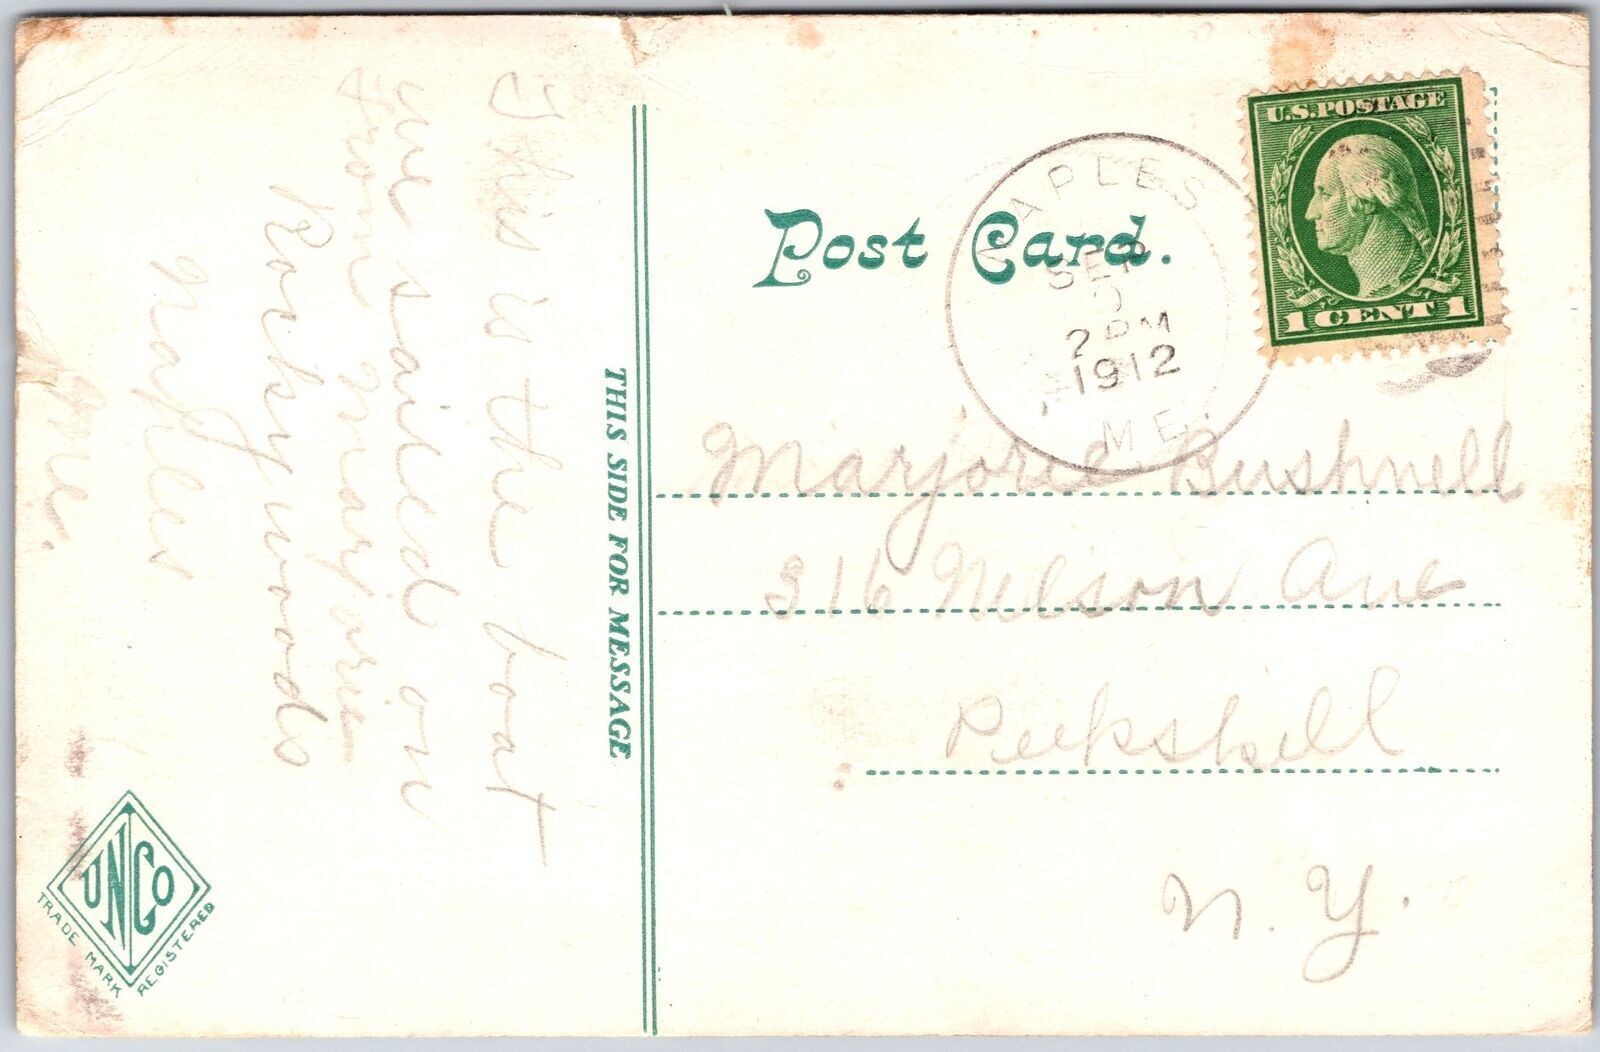 This is the boat
we sailed on
from Marjorie
Rocky woods
Naples
Me.
THIS SIDE FOR MESSAGE
Post Card.
NAPLES
SEP
2 PM
1912
ME.
U.S.POSTAGE
1 CENT 1
Marjorie Bushnell
316 Nelson Ave
Peekskill
N. Y.
UNCo
TRADE MARK REGISTERED